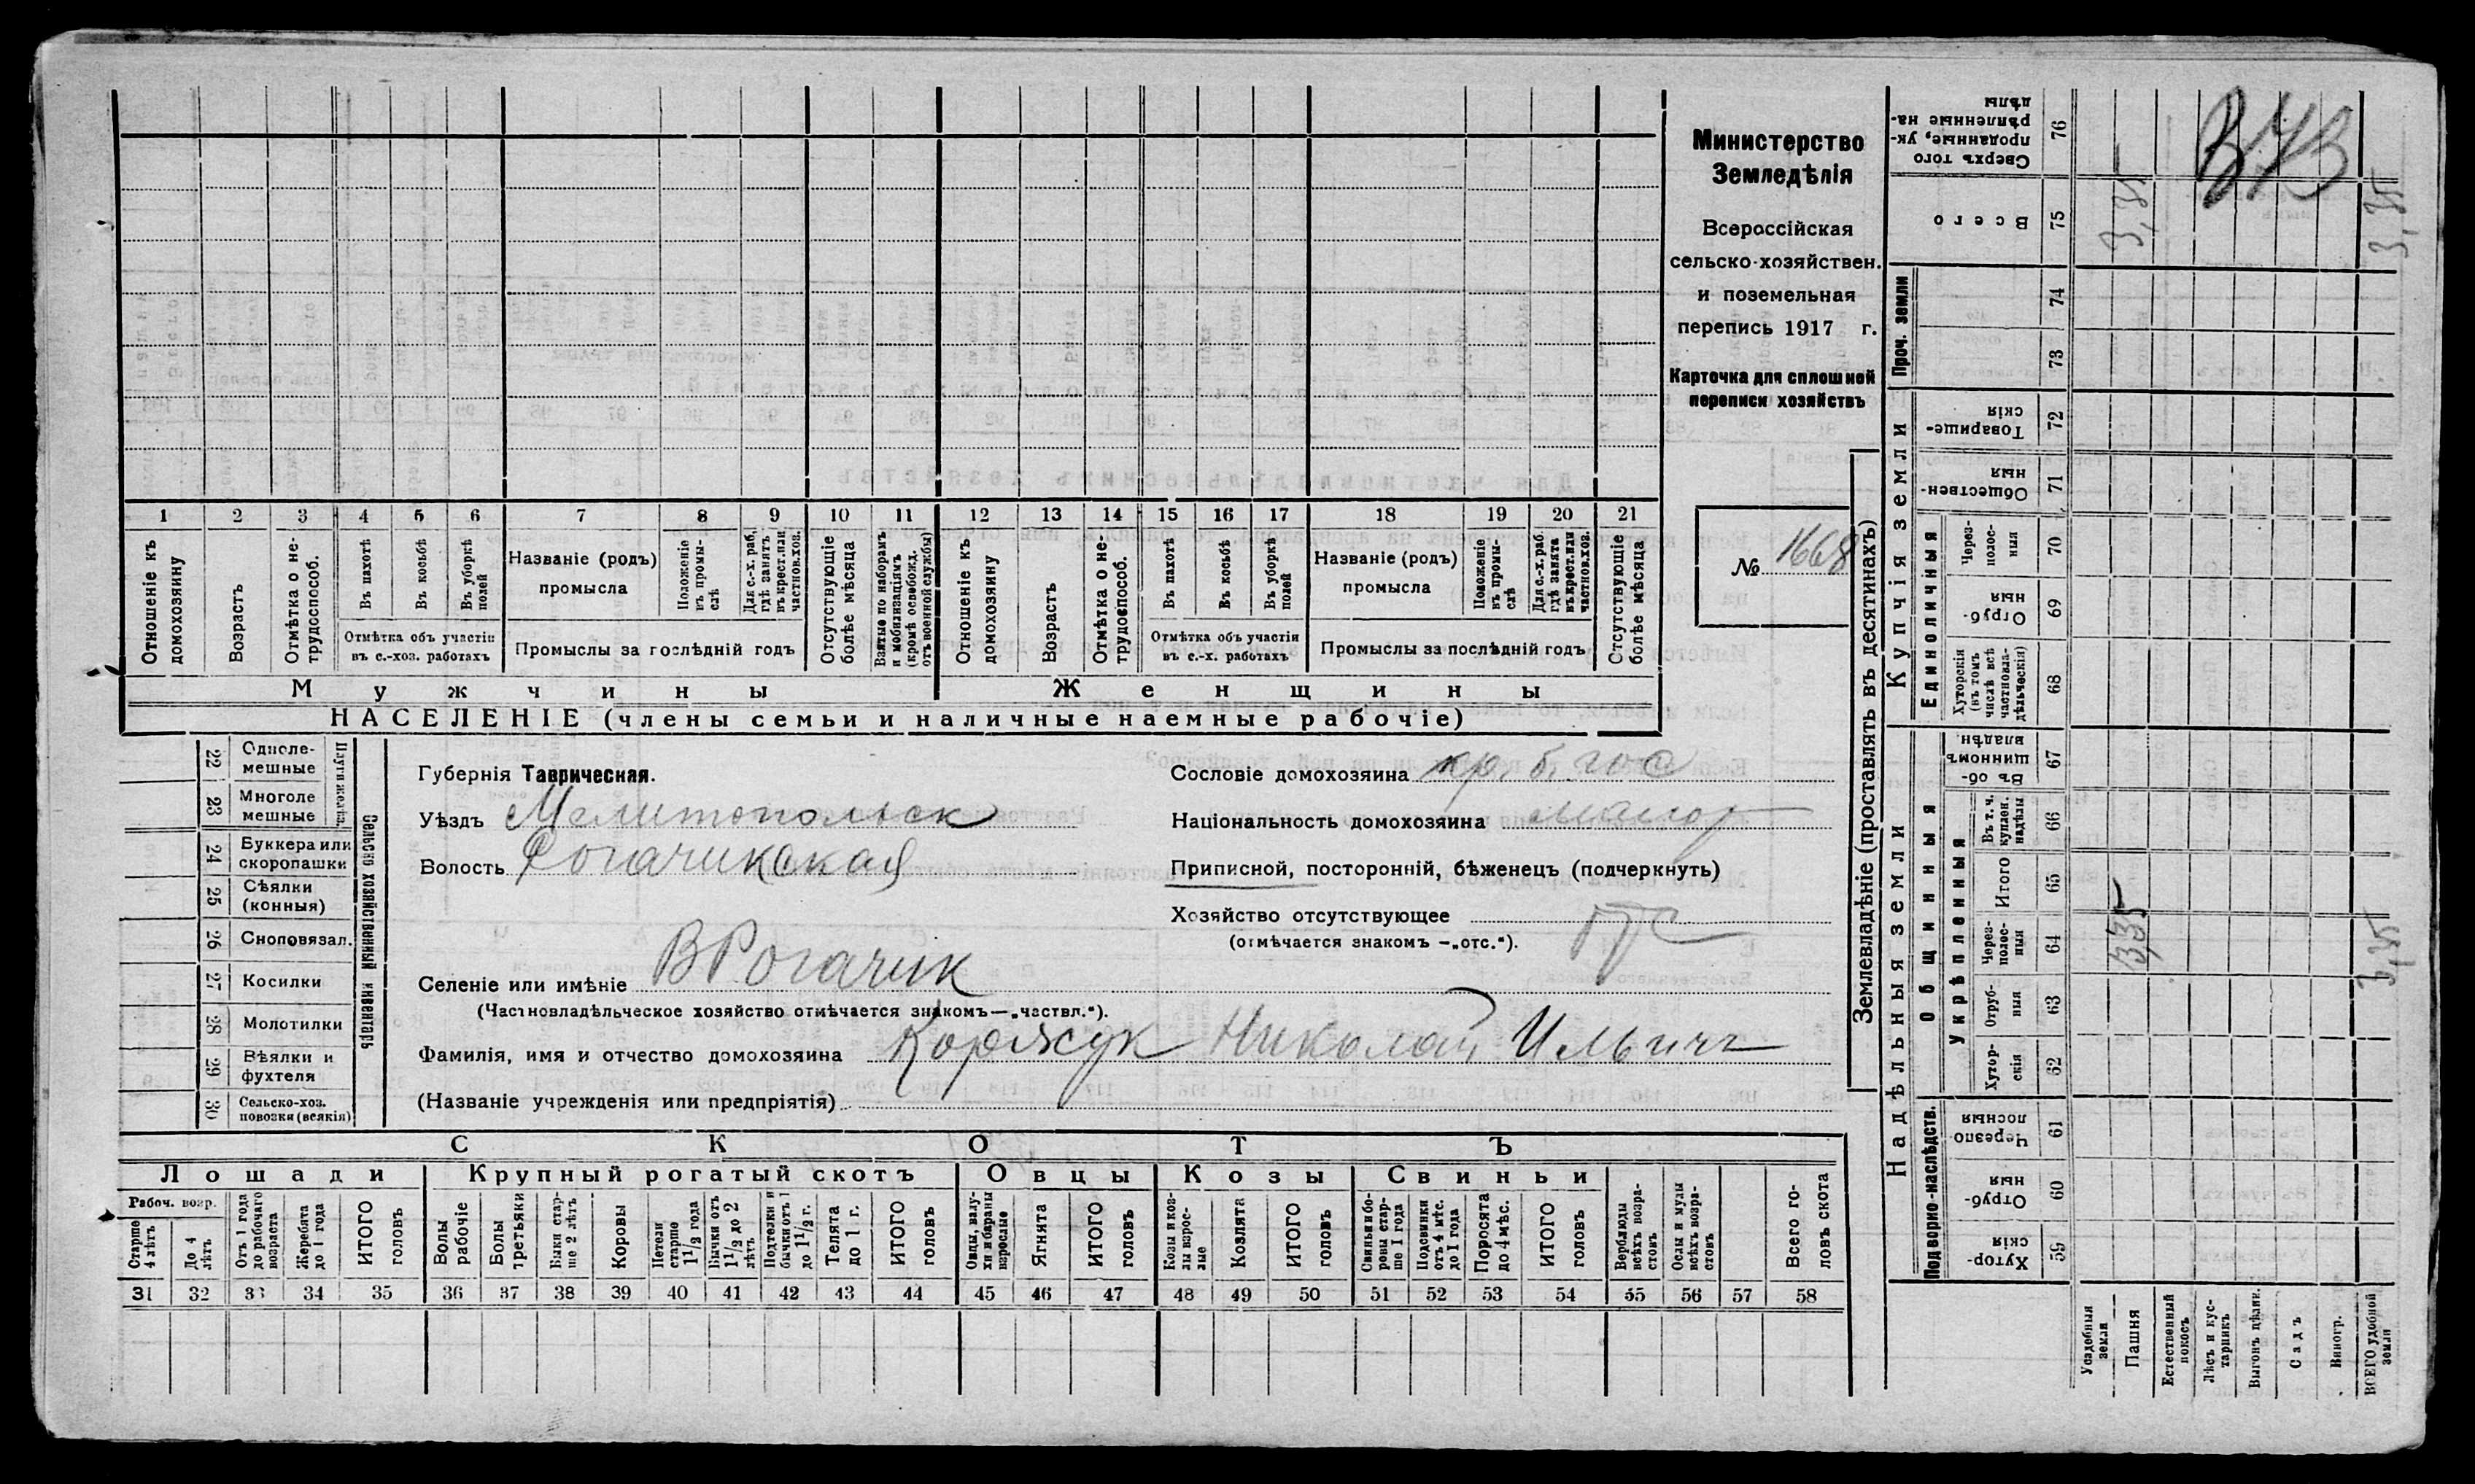 373
Министерство
Земледѣлія
Всероссійская
сельско-хозяйствен.
и поземельная
перепись 1917 г.
Карточка для сплошной
переписи хозяйствъ
№ 1668
1 2 3 4 5 6 7 8 9 10 11 12 13 14 15 16 17 18 19 20 21
Отношеніе къ домохозяину
Возрастъ
Отмѣтка о не-трудоспособ.
Въ пахотѣ
Въ косьбѣ
Въ уборкѣ полей
Отмѣтка объ участіи
въ с.-хоз. работахъ
Названіе (родъ)
промысла
Положеніе въ промы-слѣ
Для с.-х. раб. гдѣ занятъ въ крест. или частнов. хоз.
Промыслы за послѣдній годъ
Отсутствующіе болѣе мѣсяца
Взятые по наборамъ и мобилизаціямъ (кромѣ освобожд. отъ военной службы)
Отношеніе къ домохозяину
Возрастъ
Отмѣтка о не-трудоспособ.
Въ пахотѣ
Въ косьбѣ
Въ уборкѣ полей
Отмѣтка объ участіи
въ с.-х. работахъ
Названіе (родъ)
промысла
Положеніе въ промы-слѣ
Для с.-х. раб. гдѣ занята въ крест. или частнов. хоз.
Промыслы за послѣдній годъ
Отсутствующіе болѣе мѣсяца
Мужчины
Женщины
НАСЕЛЕНІЕ (члены семьи и наличные наемные рабочіе)
22 Одноле-мешные
23 Многоле мешные
Плуги желѣз.
24 Буккера или скоропашки
25 Сѣялки (конныя)
26 Сноповязал.
27 Косилки
28 Молотилки
29 Вѣялки и фухтеля
30 Сельско-хоз. повозки (всякія)
Сельско хозяйственный инвентарь
Губернія Таврическая.
Уѣздъ Мелитопольск
Волость Рогачикская
Селеніе или имѣніе В Рогачик
(Частновладѣльческое хозяйство отмѣчается знакомъ—„частвл.“).
Фамилія, имя и отчество домохозяина Коржук Николай Ильич
(Названіе учрежденія или предпріятія)
Сословіе домохозяина кр. б. гос
Національность домохозяина малор
Приписной, посторонній, бѣженецъ (подчеркнуть)
Хозяйство отсутствующее
(отмѣчается знакомъ —„отс.“).
СКОТЪ
Лошади
Крупный рогатый скотъ
Овцы
Козы
Свиньи
Рабоч. возр.
Старше 4 лѣтъ
До 4 лѣтъ
Отъ 1 года до рабочаго возраста
Жеребята до 1 года
ИТОГО головъ
Волы рабочіе
Волы третьяки
Быки стар-ше 2 лѣтъ
Коровы
Нетели старше 1 1/2 года
Бычки отъ 1 1/2 до 2 лѣтъ
Подтелки и бычки отъ 1 до 1 1/2 г.
Телята до 1 г.
ИТОГО головъ
Овцы, валу-хи и бараны взрослые
Ягнята
ИТОГО головъ
Козы и коз-лы взрос-лые
Козлята
ИТОГО головъ
Свиньи и бо-ровы стар-ше 1 года
Подсвинки отъ 4 мѣс. до 1 года
Поросята до 4 мѣс.
ИТОГО головъ
Верблюды всѣхъ возра-стовъ
Ослы и мулы всѣхъ возра-стовъ
Всего го-ловъ скота
31 32 33 34 35 36 37 38 39 40 41 42 43 44 45 46 47 48 49 50 51 52 53 54 55 56 57 58
Землевладѣніе (проставлять въ десятинахъ)
Надѣльныя земли
Купчія земли
Проч. земли
Подворно-наслѣдств.
Общинныя
Укрѣпленныя
Единоличныя
Хутор-скія 59
Отруб-ныя 60
Черезпо лосныя 61
Хутор-скія 62
Отруб-ныя 63
Через-полос-ныя 64
Итого 65
Въ т. ч. куплен. надѣлы 66
Въ об-щинномъ владѣн. 67
Хуторскія (въ томъ числѣ всѣ частновла-дѣльческія) 68
Отруб-ныя 69
Через-полос-ныя 70
Обществен-ныя 71
Товарище-скія 72
73
74
Всего 75
Сверхъ того проданные, ук-рѣпленные на-дѣлы 76
Усадебныя земля
Пашня
Естественный покосъ
Лѣсъ и кус-тарникъ
Выгонъ цѣлин.
Садъ
Виногр.
ВСЕГО удобной земли
3,35
3,35
3,35
3,35